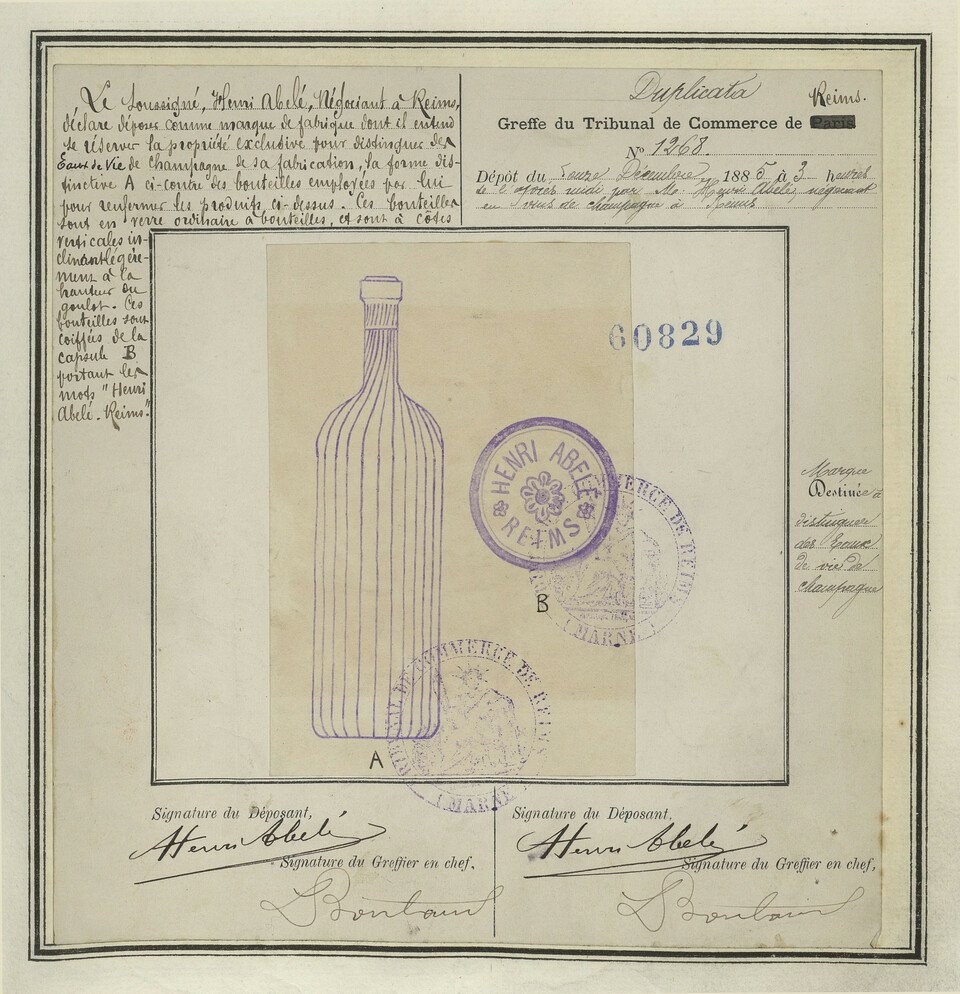 Le Soussigné, Henri Abelé, Négociant à Reims,
déclare déposer comme marque de fabrique dont il entend
se réserver la propriété exclusive pour distinguer des
Eaux de Vie de Champagne de sa fabrication, la forme dis-
tinctive A ci-contre des bouteilles employées par lui
pour renfermer les produits ci-dessus. Ces bouteilles
sont en verre ordinaire à bouteilles, et sont à côtes
verticales in-
clinant légère-
ment à la
hauteur du
goulot. Ces
bouteilles sont
coiffées de la
capsule B
portant les
mots "Henri
Abelé. Reims."
Duplicata
Reims.
Greffe du Tribunal de Commerce de Paris
No 1268.
Dépôt du Décembre 1885 à 3 heures
de l'après midi par Mr Henri Abelé, négociant
en vins de champagne à Reims
60829
HENRI ABELÉ
REIMS
B
TRIBUNAL DE COMMERCE DE REIMS
(MARNE)
A
TRIBUNAL DE COMMERCE DE REIMS
(MARNE)
Marque
Destinée à
distinguer
des Eaux
de vie de
champagne
Signature du Déposant,
Henri Abelé
Signature du Greffier en chef,
Signature du Déposant,
Henri Abelé
Signature du Greffier en chef,